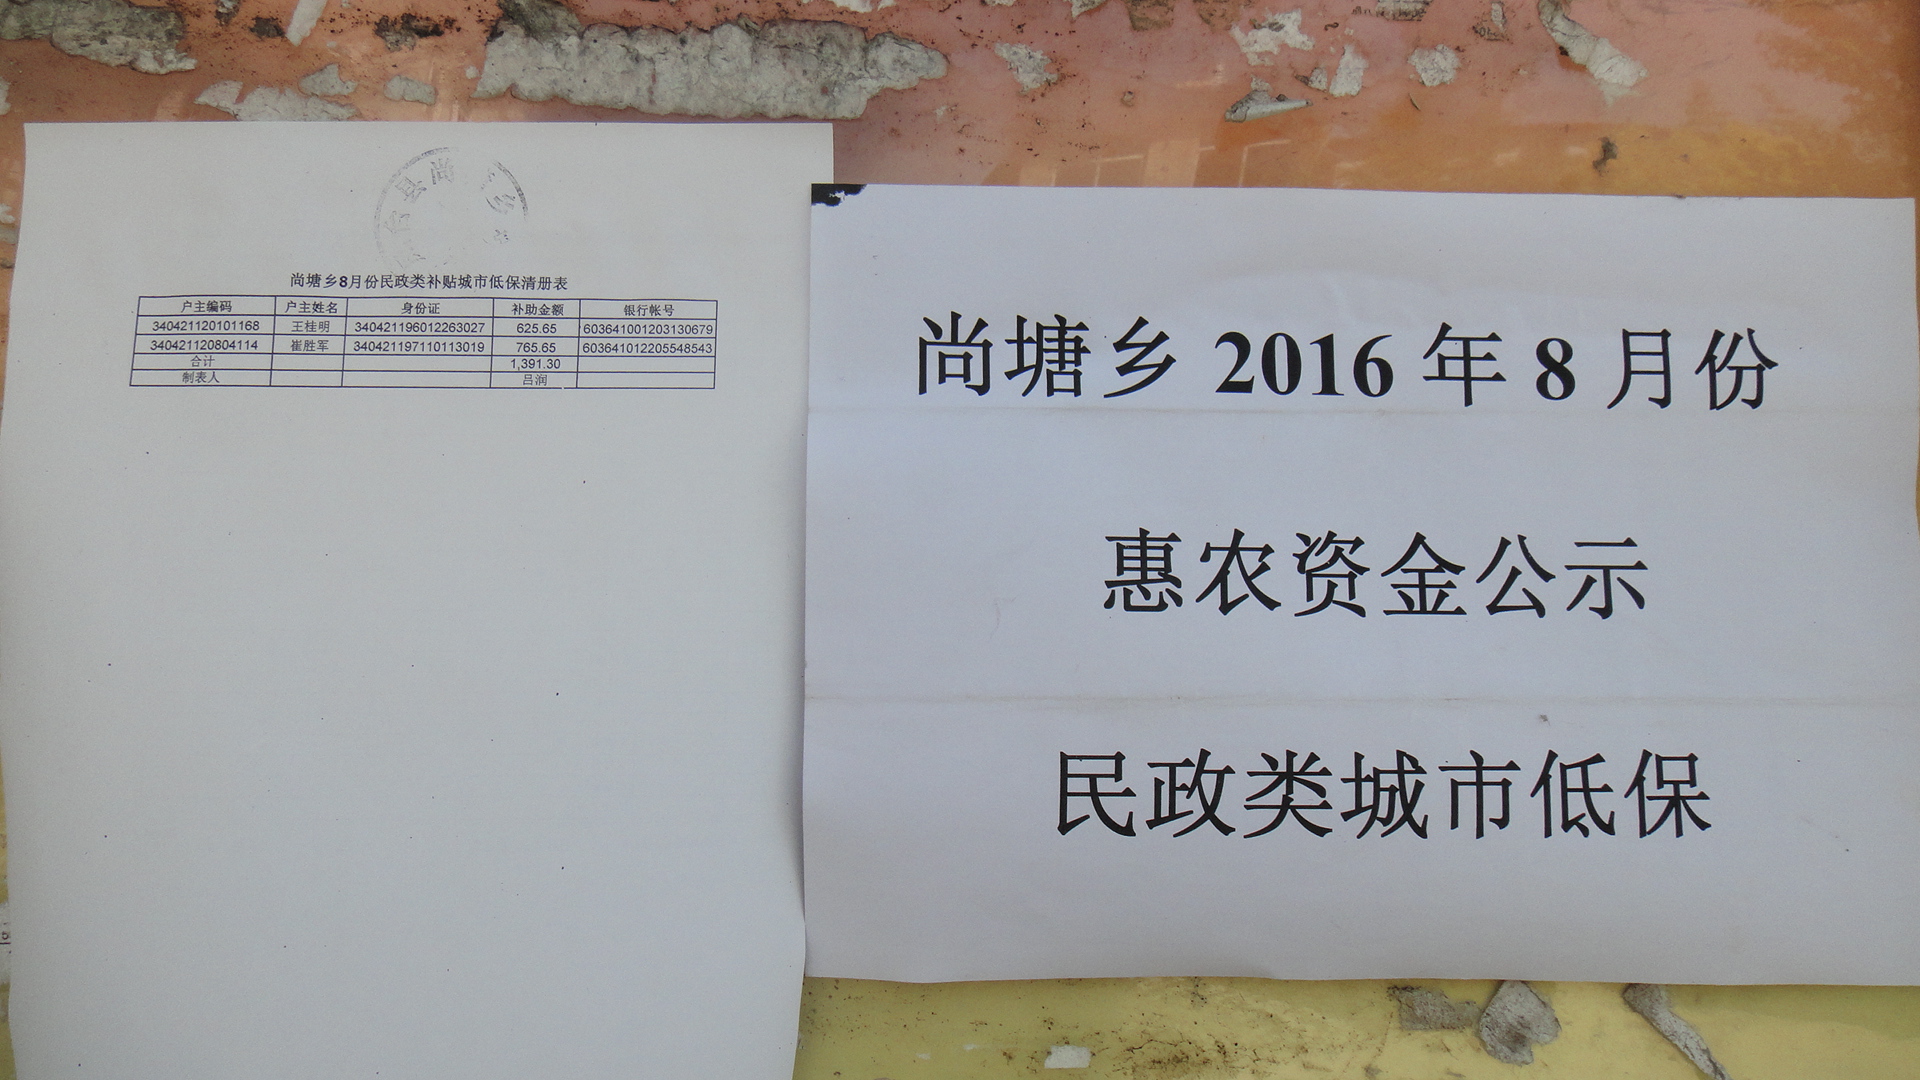 县尚
乡
尚塘乡8月份民政类补贴城市低保清册表
户主编码 户主姓名 身份证 补助金额 银行帐号
340421120101168 王桂明 340421196012263027 625.65 6036410012031306​79
340421120804114 崔胜军 340421197110113019 765.65 603641012205548543
合计 1,391.30
制表人 吕润
尚塘乡 2016 年 8 月份
惠农资金公示
民政类城市低保